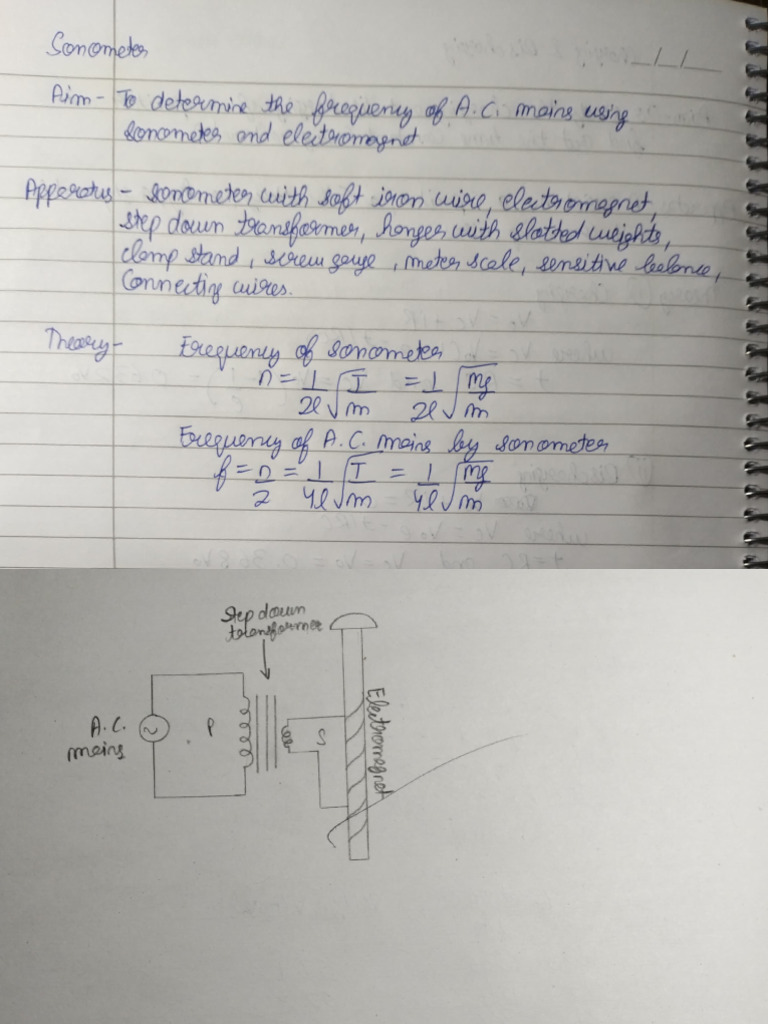 Sonometer
__/__/__
Aim - To determine the frequency of A.C. mains using
sonometer and electromagnet
Apparatus - sonometer with soft iron wire, electromagnet,
step down transformer, hanger with slotted weights,
clamp stand, screw gauge, meter scale, sensitive balance,
Connecting wires.
Theory - Frequency of sonometer
n = 1/2l √T/m = 1/2l √Mg/m
Frequency of A.C. mains by sonometer
f = n/2 = 1/4l √T/m = 1/4l √Mg/m
Step down
transformer
A.C.
mains
P
S
Electromagnet